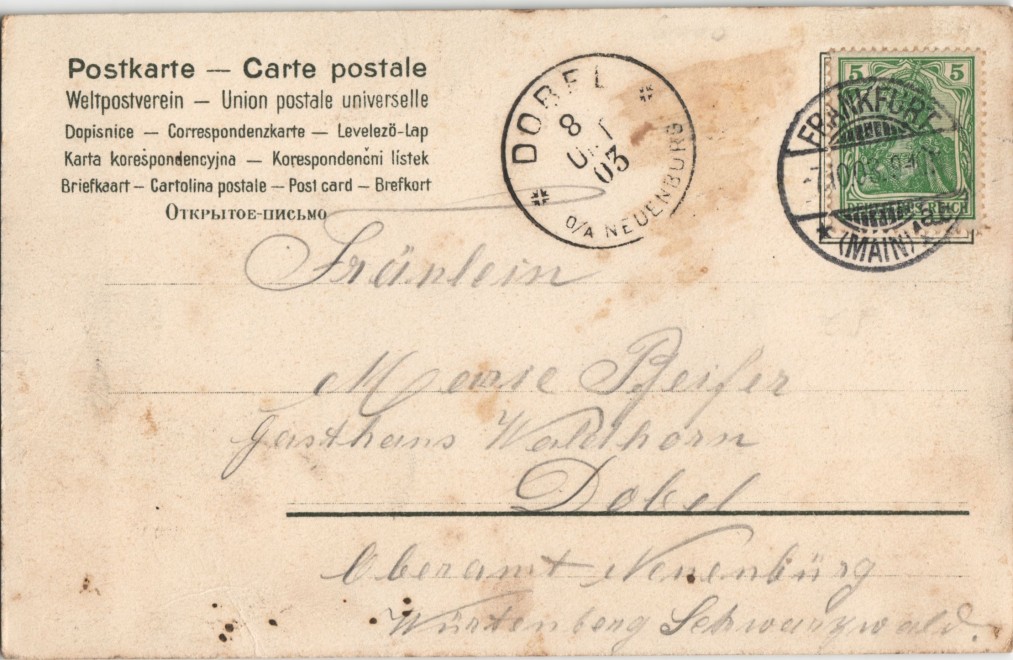 Postkarte — Carte postale
Weltpostverein — Union postale universelle
Dopisnice — Correspondenzkarte — Levelező-Lap
Karta korespondencyjna — Korespondenčni listek
Briefkaart — Cartolina postale — Post card — Brefkort
Открытое-письмо
DOBEL
8
03
O/A NEUENBÜRG
5 5
FRANKFURT
(MAIN)
Fräulein
Marie Pfeifer
Gasthaus Waldhorn
Dobel
Oberamt Neuenbürg
Würtenberg Schwarzwald.